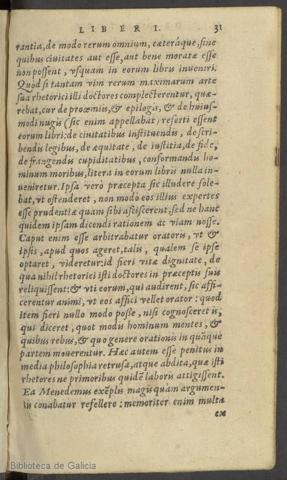 LIBER I. 31
rantia, de modo rerum omnium, cæteráque, sine
quibus ciuitates aut esse, aut bene moratæ esse
non possent, vsquam in eorum libris inueniri.
Quòd si tantam vim rerum maximarum arte
sua rhetorici illi doctores complecterentur, quæ-
rebat, cur de proœmiis, & epilogis, & de huius-
modi nugis (sic enim appellabat) referti essent
eorum libri: de ciuitatibus instituendis, de scri-
bendis legibus, de æquitate, de iustitia, de fide,
de frangendis cupiditatibus, conformandis ho-
minum moribus, litera in eorum libris nulla in-
ueniretur. Ipsa verò præcepta sic illudere sole-
bat, vt ostenderet, non modò eos illius expertes
esse prudentiæ quam sibi asciscerent, sed ne hanc
quidem ipsam dicendi rationem ac viam nosse.
Caput enim esse arbitrabatur oratoris, vt &
ipsis, apud quos ageret, talis, qualem se ipse
optaret, videretur: id fieri vitæ dignitate, de
qua nihil rhetorici isti doctores in præceptis suis
reliquissent: & vti eorum, qui audirent, sic affi-
cerentur animi, vt eos affici vellet orator: quod
item fieri nullo modo posse, nisi cognosceret is,
qui diceret, quot modis hominum mentes, &
quibus rebus, & quo genere orationis in quãque
partem mouerentur. Hæc autem esse penitus in
media philosophia retrusa, atque abdita, quæ isti
rhetores ne primoribus quidẽ labris attigissent.
Ea Menedemus exẽplis magis quam argumen-
tis conabatur refellere: memoriter enim multa
ex
Biblioteca de Galicia